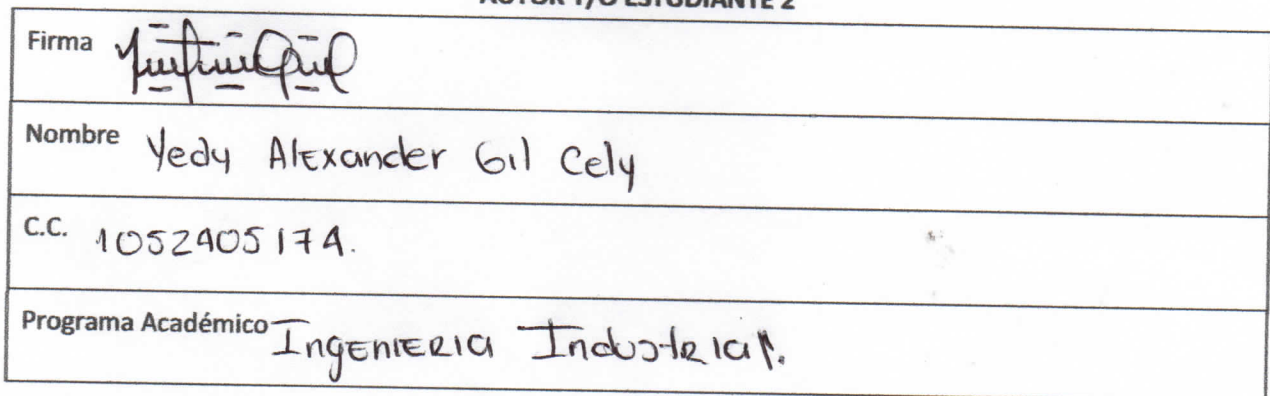 AUTOR Y/O ESTUDIANTE 2
Firma
Nombre Yedy Alexander Gil Cely
C.C. 1052405174.
Programa Académico Ingenieria Industrial.